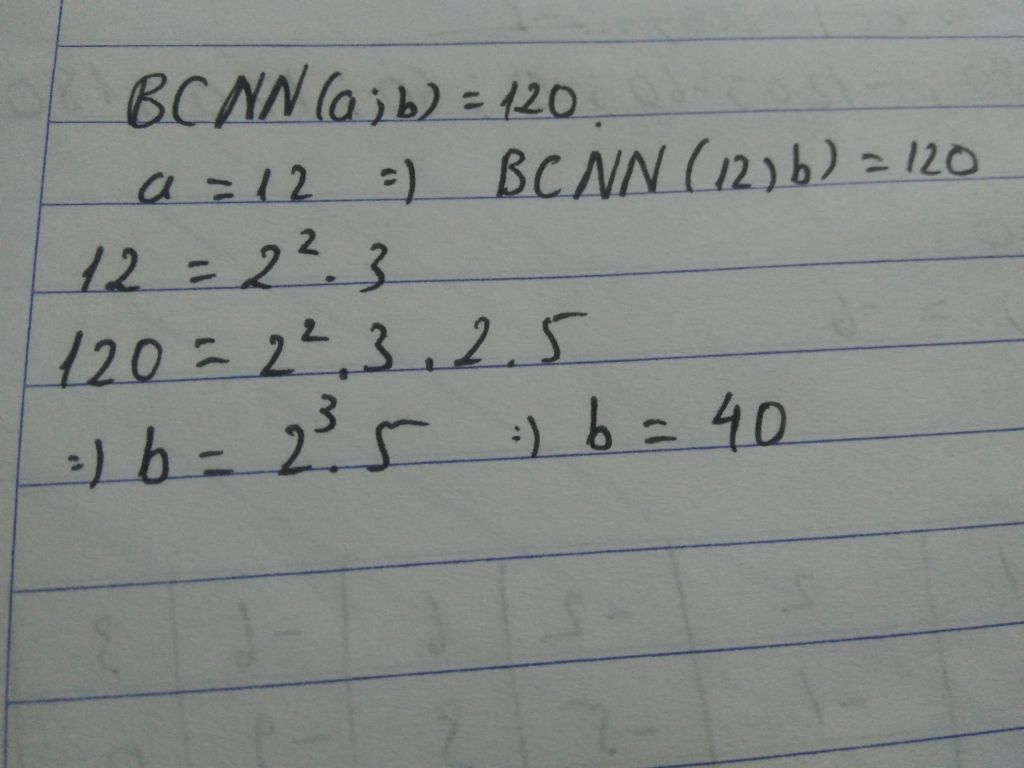 BCNN(a;b) = 120.
a = 12 => BCNN(12;b) = 120
12 = 2². 3
120 = 2².3.2.5
=> b = 2³.5 => b = 40